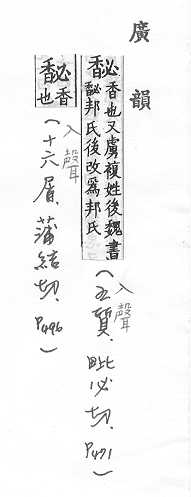 廣韻
馝 香也又虜複姓後魏書馝邦氏後改爲邦氏
(入聲 五質、毗必切、P471)
馝 香也
(入聲 十六屑、蒲結切、P496)